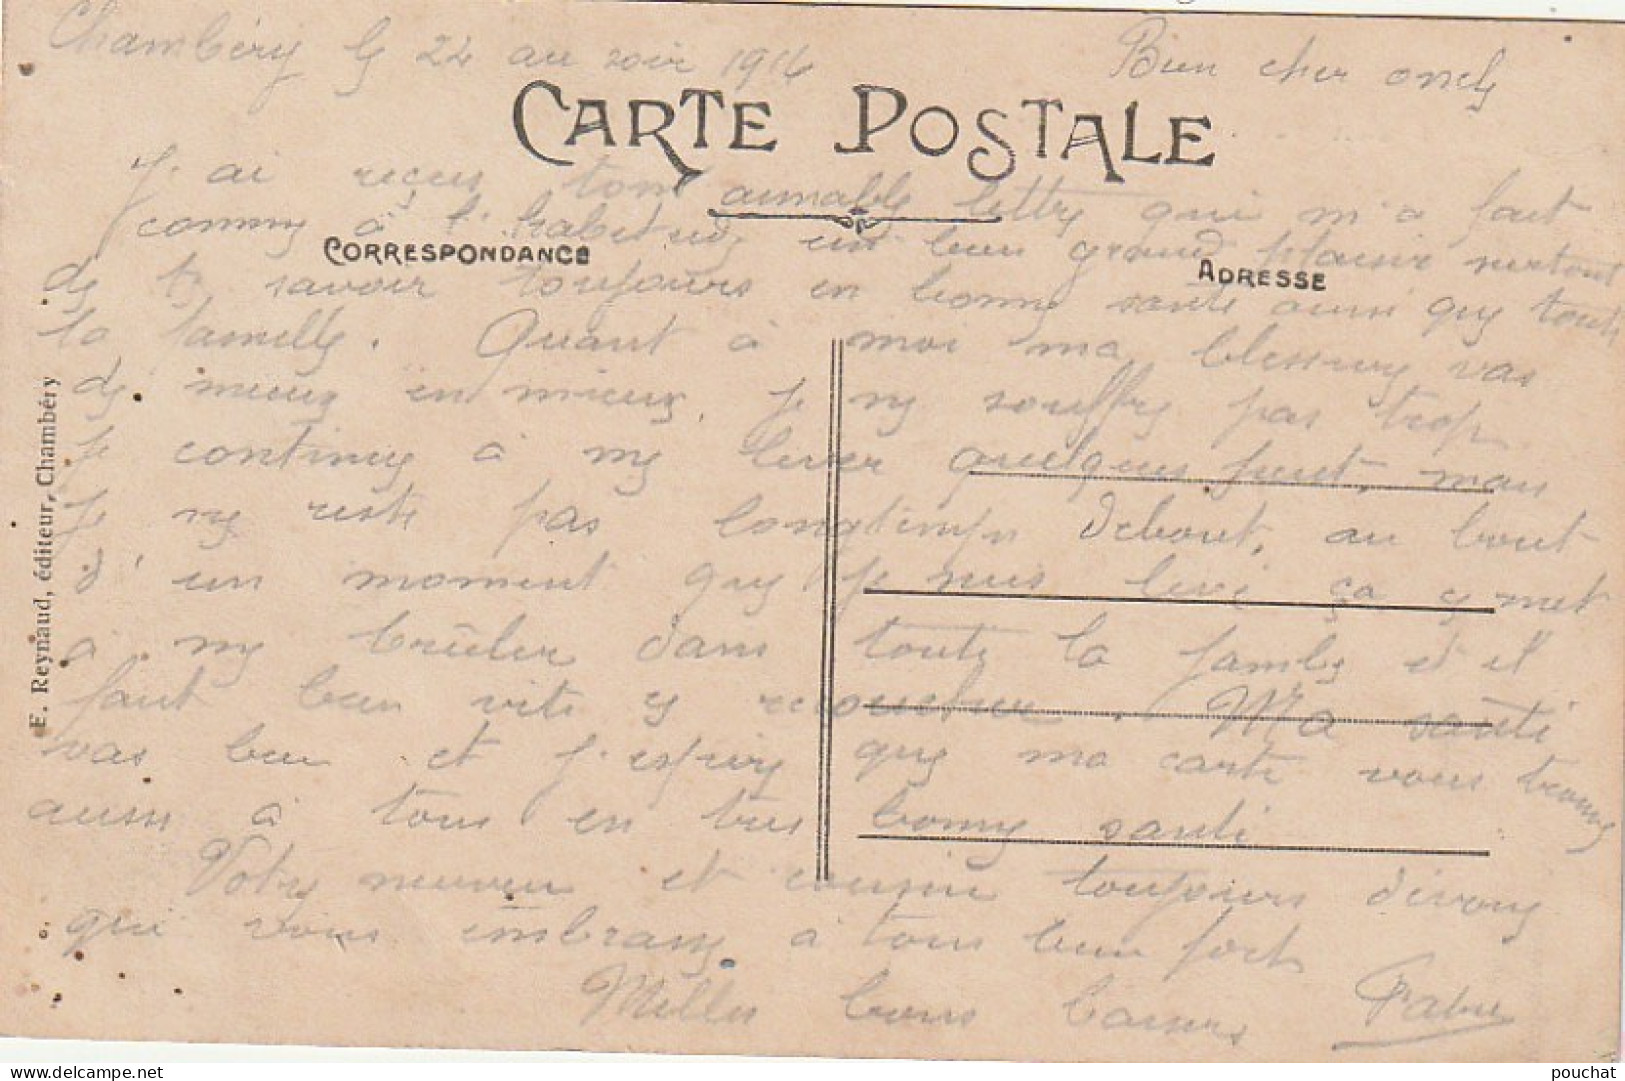 Chambéry le 22 au soir 1916
Bien cher oncle
CARTE POSTALE
J'ai reçus ton aimable lettre qui m'a fait
comme à l'habitude un bien grand plaisir surtout
CORRESPONDANCE
ADRESSE
de te savoir toujours en bonne santé ainsi que toute
la famille. Quant à moi ma blessure vas
de mieux en mieux, je ne souffre pas trop
je continue à me lever quelques peut, mais
je ne reste pas longtemps debout, au bout
d'un moment que je suis levé ça y met
a me brûler dans toute la jambe et il
faut bien vite y recoucher. Ma santé
vas bien et j'espère que ma carte vous trouve
aussi à tous en très bonne santé
Votre neuveu et cousin toujours dévoué
qui vous embrasse a tous bien fort
Milles bons baisers
E. Reynaud, éditeur, Chambéry
pouchat
https://www.delcampe.net